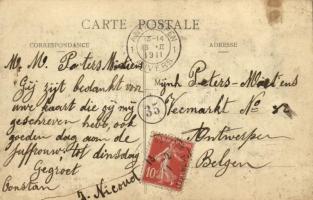 CARTE POSTALE
CORRESPONDANCE
ADRESSE
13-14
1911
Mr Mr Peeters Mertens
Gij zijt bedankt voor
uwe kaart die gij mij
geschreven hebt, ook
goeden dag aan de
juffrouw: tot dinsdag
Gegroet
Constan
35
Mijnh Peters-Mertens
Veemarkt No
Antwerpen
Belgen
10